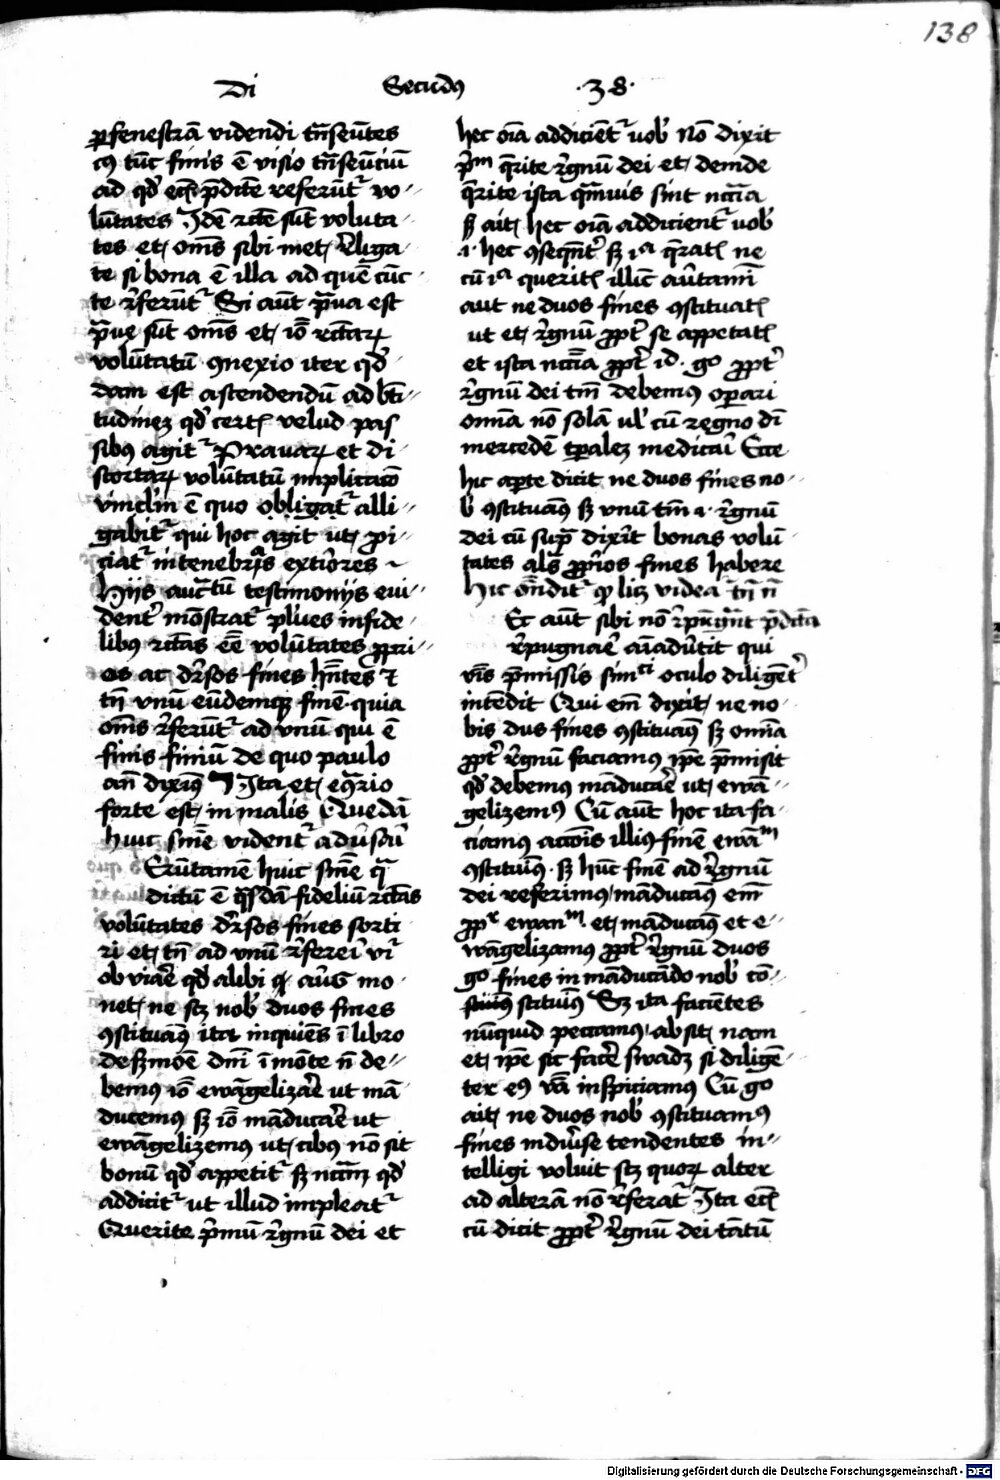 138
Di Secūdꝯ .38.
ꝑ fenestrā videndi tn̄seūtes
cuiꝯ tūc finis ē visio tn̄seūciū
ad qd' eciā p̄dicte referūtᷣ vo
lūtates Idē rcē sūt voluta
tes et om̄s sibimet religa
te si bona ē illa ad quē cūc
te r̄ferūtᷣ Si aūt p̄ua est
p̄ue sūt om̄s et iō rctarꝝ
volūtatū ꝯnexio iter qd'
dam est astendendū ad bt̄i
tudinez qd' certꝭ velud pas
sibꝯ agitᷣ Prauarꝝ et di
stortarꝝ volūtatū implicacō
vincl'm ē quo obligatᷣ alli
gabitᷣ qui hoc agit ut ꝓi
ciatᷣ in tenebras extiores
Hijs auctū testimonijs eui
dent' mōstratᷣ pl'ues infide
libꝯ rctas eē volūtates ꝓpri
as ac d'rsos fines hn̄tes ⁊
tn̄ vnū eūdemqꝫ finē quia
om̄s r̄ferūtᷣ ad vnū qui ē
finis finiū de quo paulo
an̄ diximꝯ Ita et eqrio
forte est in malis Quedā
huic sn̄ie videntᷣ adūsari
Erūtamē huic sn̄ie q̄
dictū ē qsdā fideliū rctas
volūtates d'rsos fines sorti
ri et tn̄ ad vnū r̄ferri vr̄
obviare qd' alibi aug mo
net ne scꝫ nob' duos fines
ꝯstituāꝯ ita inquiēs ī libro
de sermōe dn̄i ī mōte n̄ de
bemꝯ iō ewāgelizare ut mā
ducemꝯ sꝫ iō māducare ut
ewāgelizemꝯ ut cibꝯ nō sit
bonū qd' appetitᷣ sꝫ ncm̄ qd'
addicitᷣ ut illud impleatᷣ
Querite p̄mū r̄gnū dei et
hec oīa addiciēt' uob' Nō dixit
p̄ᵐ q̄rite r̄gnū dei et deinde
q̄rite ista q̄muis sint nccīa
sꝫ ait hec oīa addicientᷣ uob'
.i. hec ꝯseqn̄t' sꝫ iᵃ q̄ratꝭ ne
cū iᵃ queritꝭ illinc aūtamī
aut ne duos fines ꝯstituatꝭ
ut et r̄gnū ꝓpt' se appetatꝭ
et ista nccīa ꝓpt' id. go ꝓpt'
r̄gnū dei tm̄ debemꝯ oꝑari
omīa nō solā ul' cū regno di
mercedē tꝑalez medicari Ecce
hic aꝑte dicit ne duos fines no
b' ꝯstituāꝯ sꝫ vnū tm̄ .i. r̄gnū
dei cū sup̄ dixit bonas volū
tates als ꝓprios fines habere
Hic on̄ditᷣ qꝫ licꝫ videatᷣ tn̄ n̄
Ec aūt sibi nō r̄pugnāt p̄dicta
r̄pugnare aīadūtit qui
vīs p̄missis simˡᶦ oculo diligent'
intēdit Qui em̄ dixit ne no
bis duos fines ꝯstituāꝯ sꝫ omīa
ꝓpt' r̄gnū faciamꝯ ip̄e p̄misit
qd' debemꝯ māducare ut ewā
gelizemꝯ Cū aūt hoc ita fa
ciamꝯ accōis illiꝯ finē ewāᵐ
ꝯstituimꝯ sꝫ hūc finē ad r̄gnū
dei referimꝯ māducāꝯ em̄
ꝓpᵗ ewanᵐ et māducāꝯ et e
wāgelizamꝯ ꝓpt' r̄gnū duos
go fines in māducādo nob' cō
stituimꝯ Sꝫ ita faciētes
nūquid peccamꝯ absit nam
et ip̄e sic facere swadꝫ si diligē
ter eiꝯ v̄ba inspiciamꝯ Cū go
ait ne duos nob' ꝯstituamꝯ
fines indiuse tendentes in
telligi voluit scꝫ quorꝝ alter
ad alterā nō r̄feratᷣ Ita eciā
cū dicit ꝓpt' r̄gnū dei tātū
Digitalisierung gefördert durch die Deutsche Forschungsgemeinschaft - DFG